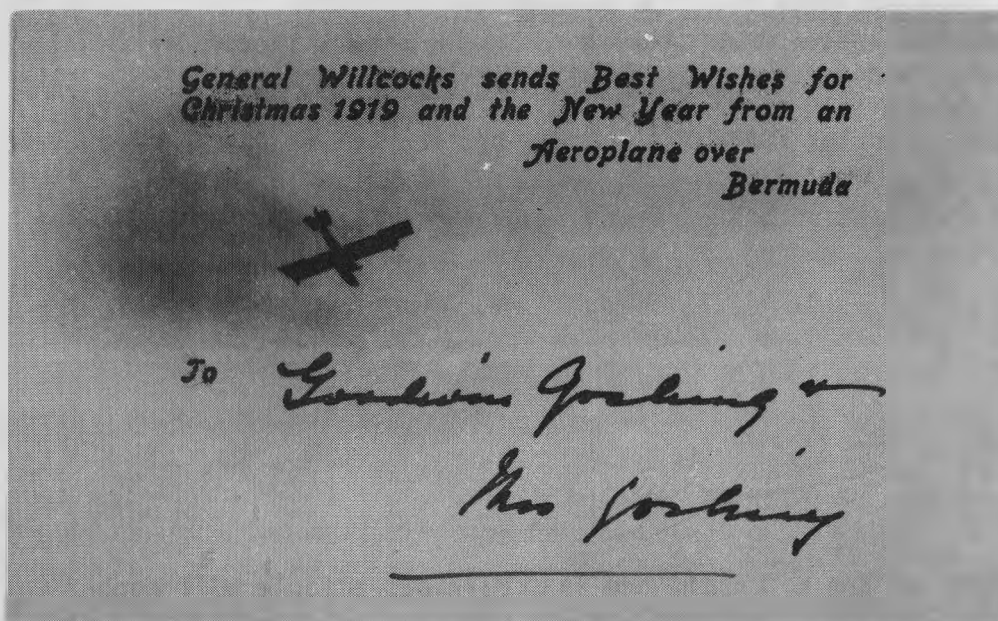 General Willcocks sends Best Wishes for
Christmas 1919 and the New Year from an
Aeroplane over
Bermuda
To Goodwin Gosling &
Mrs Gosling